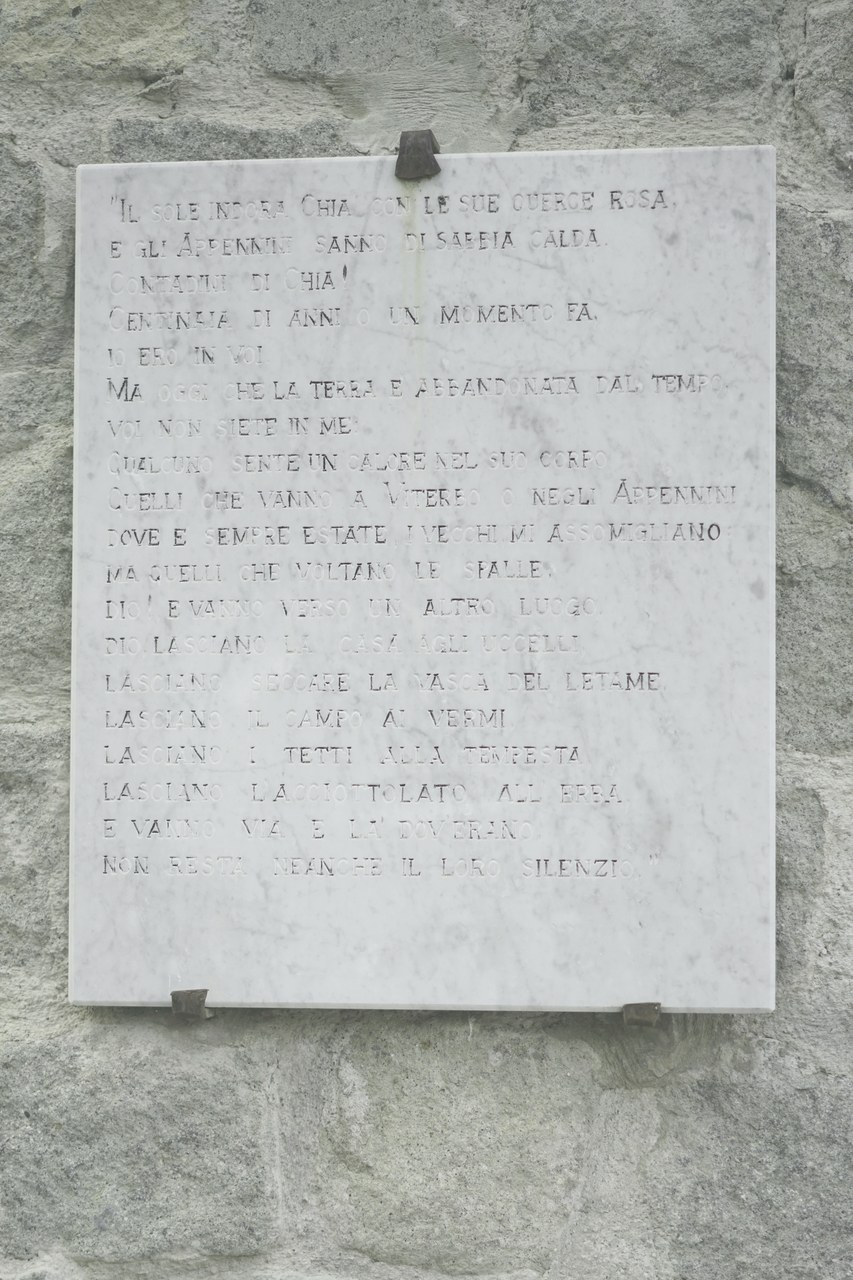 "IL SOLE INDORA CHIA CON LE SUE QUERCE ROSA,
E GLI APPENNINI SANNO DI SABBIA CALDA.
CONTADINI DI CHIA!
CENTINAIA DI ANNI O UN MOMENTO FA,
IO ERO IN VOI.
MA OGGI CHE LA TERRA E ABBANDONATA DAL TEMPO,
VOI NON SIETE IN ME.
QUALCUNO SENTE UN CALORE NEL SUO CORPO
QUELLI CHE VANNO A VITERBO O NEGLI APPENNINI
DOVE E SEMPRE ESTATE, I VECCHI MI ASSOMIGLIANO:
MA QUELLI CHE VOLTANO LE SPALLE,
DIO! E VANNO VERSO UN ALTRO LUOGO,
DIO LASCIANO LA CASA AGLI UCCELLI,
LASCIANO SECCARE LA VASCA DEL LETAME,
LASCIANO IL CAMPO AI VERMI,
LASCIANO I TETTI ALLA TEMPESTA,
LASCIANO L'ACCIOTTOLATO ALL'ERBA,
E VANNO VIA E LA' DOV'ERANO,
NON RESTA NEANCHE IL LORO SILENZIO."